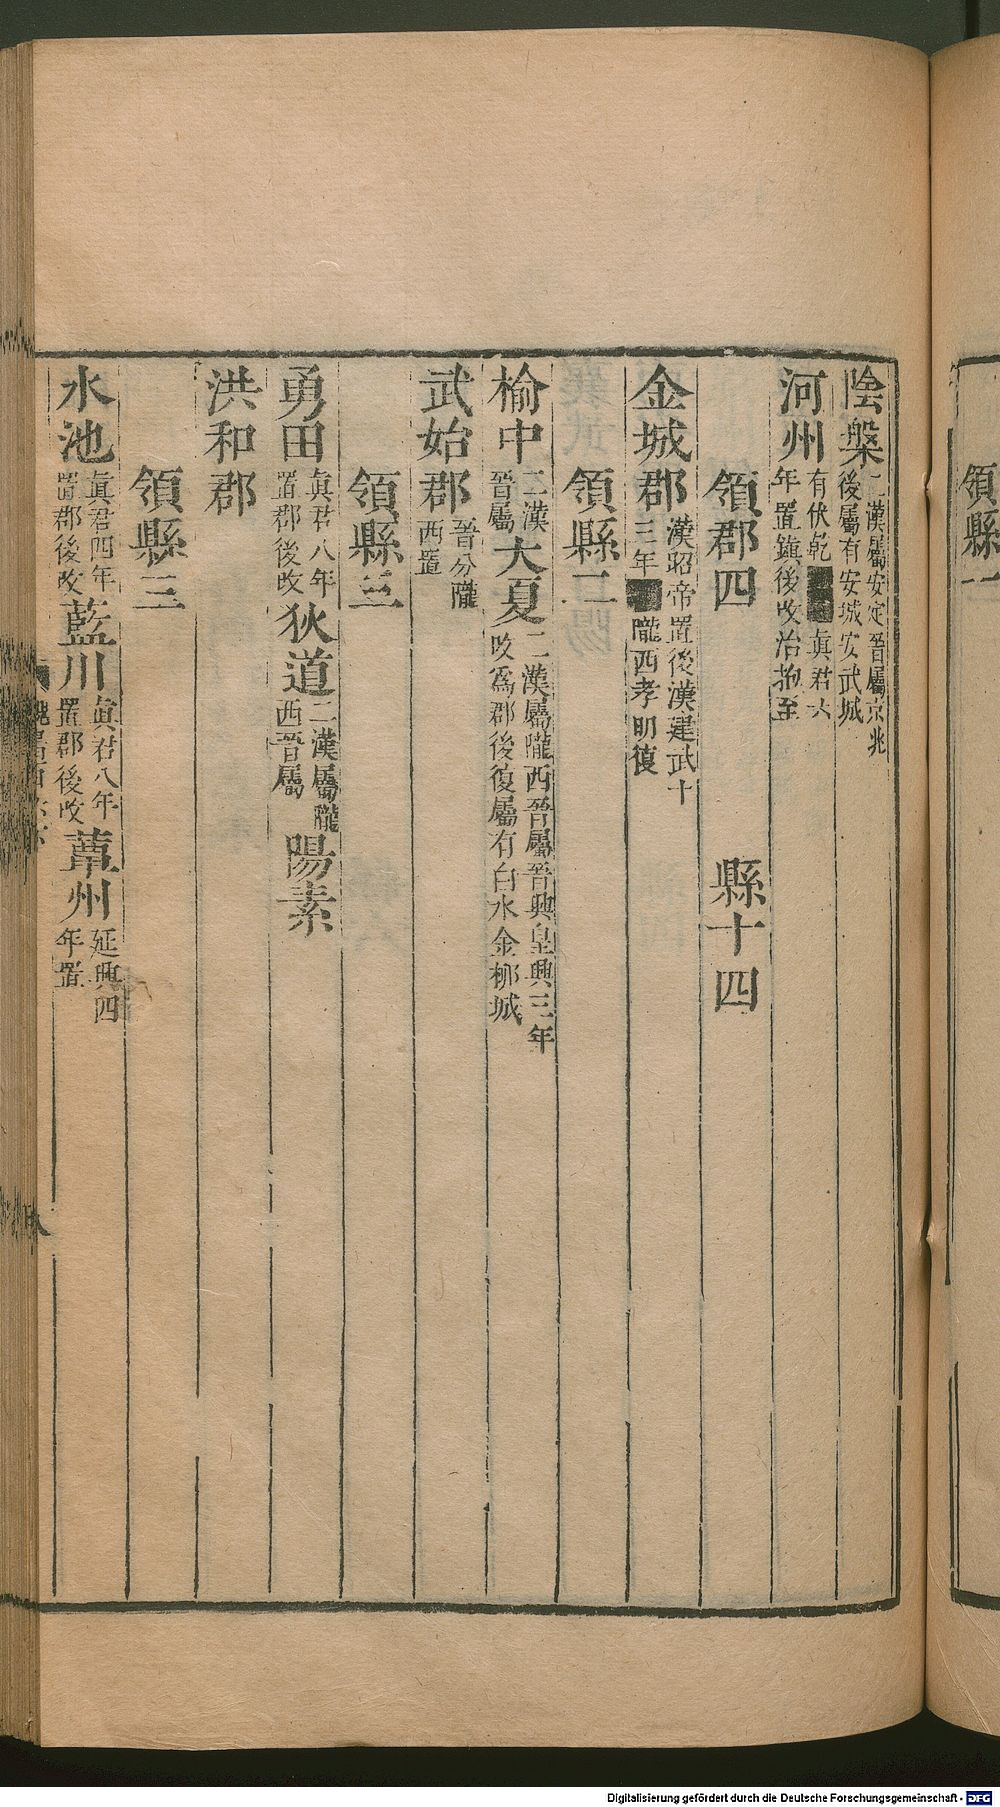 領縣一
陰槃二漢屬安定晉屬京兆後屬有安城安武城
河州有伏乾 真君六年置鎮後改治枹至
領郡四 縣十四
金城郡漢昭帝置後漢建武十三年 隴西孝明復
領縣二
榆中二漢晉屬大夏二漢屬隴西晉屬晉興皇興三年改爲郡後復屬有白水金柳城
武始郡晉分隴西置
領縣三
勇田真君八年置郡後改狄道二漢屬隴西晉屬陽素
洪和郡
領縣三
水池真君四年置郡後改藍川真君八年置郡後改蕇州延興四年置
八
Digitalisierung gefördert durch die Deutsche Forschungsgemeinschaft - DFG